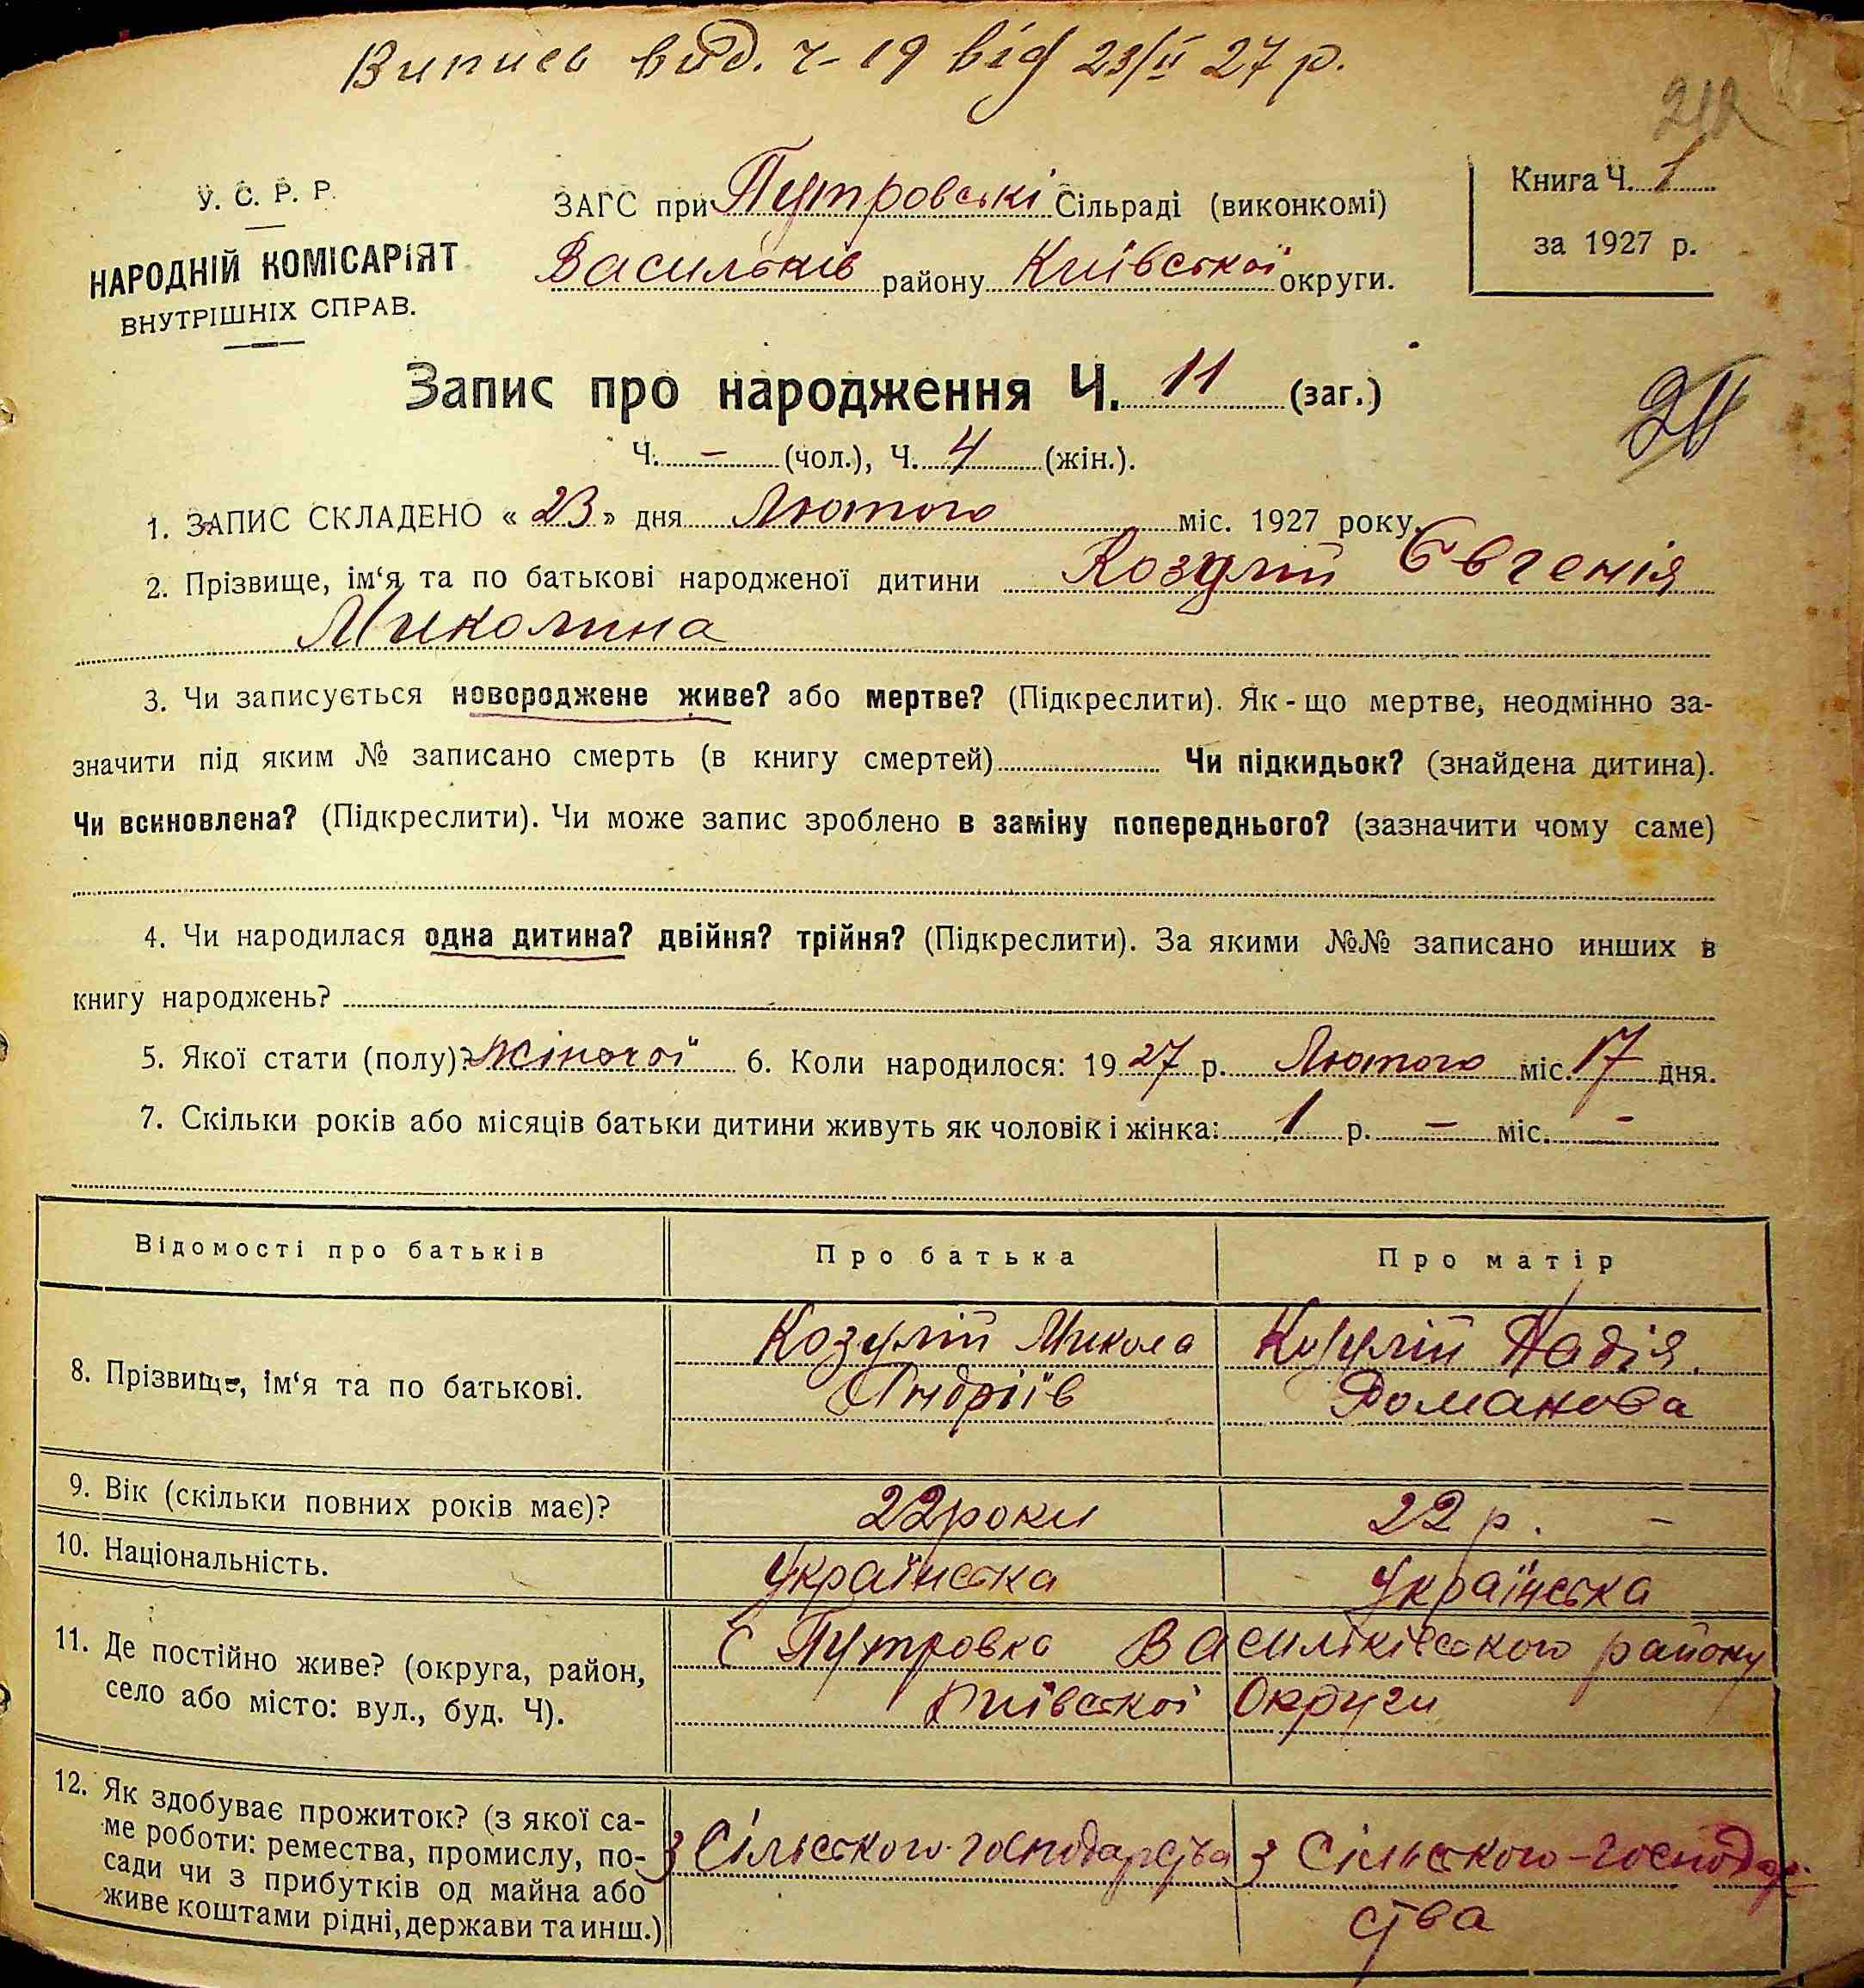 Випись вид. Ч- 19 від 23/II 27 р.
212
У. С. Р. Р.
НАРОДНІЙ КОМІСАРІЯТ
ВНУТРІШНІХ СПРАВ.
ЗАГС при Путровські Сільраді (виконкомі)
Васильків району Київської округи.
Книга Ч. 1
за 1927 р.
Запис про народження Ч. 11 (заг.)
211
Ч. – (чол.), Ч. 4 (жін.).
1. ЗАПИС СКЛАДЕНО « 23 » дня Лютого міс. 1927 року.
2. Прізвище, ім‘я, та по батькові народженої дитини Козулій Євгенія
Миколина
3. Чи записується новороджене живе? або мертве? (Підкреслити). Як - що мертве, неодмінно за-
значити під яким № записано смерть (в книгу смертей) Чи підкидьок? (знайдена дитина).
Чи всиновлена? (Підкреслити). Чи може запис зроблено в заміну попереднього? (зазначити чому саме)
4. Чи народилася одна дитина? двійня? трійня? (Підкреслити). За якими №№ записано инших в
книгу народжень?
5. Якої стати (полу)? Жіночої 6. Коли народилося: 19 27 р. Лютого міс. 17 дня.
7. Скільки років або місяців батьки дитини живуть як чоловік і жінка: 1 р. – міс. –
Відомості про батьків Про батька Про матір
8. Прізвище, ім‘я та по батькові.
Козулій Микола
Андріїв
Козулій Надія.
Романова
9. Вік (скільки повних років має)? 22 роки 22 р. –
10. Національність. Українська Українська
11. Де постійно живе? (округа, район,
село або місто: вул., буд. Ч).
С Путровка Васильківського району
Київської Округи
12. Як здобуває прожиток? (з якої са-
ме роботи: ремества, промислу, по-
сади чи з прибутків од майна або
живе коштами рідні, держави та инш.)
З Сільського-господарства
З Сільського-господар-
ства